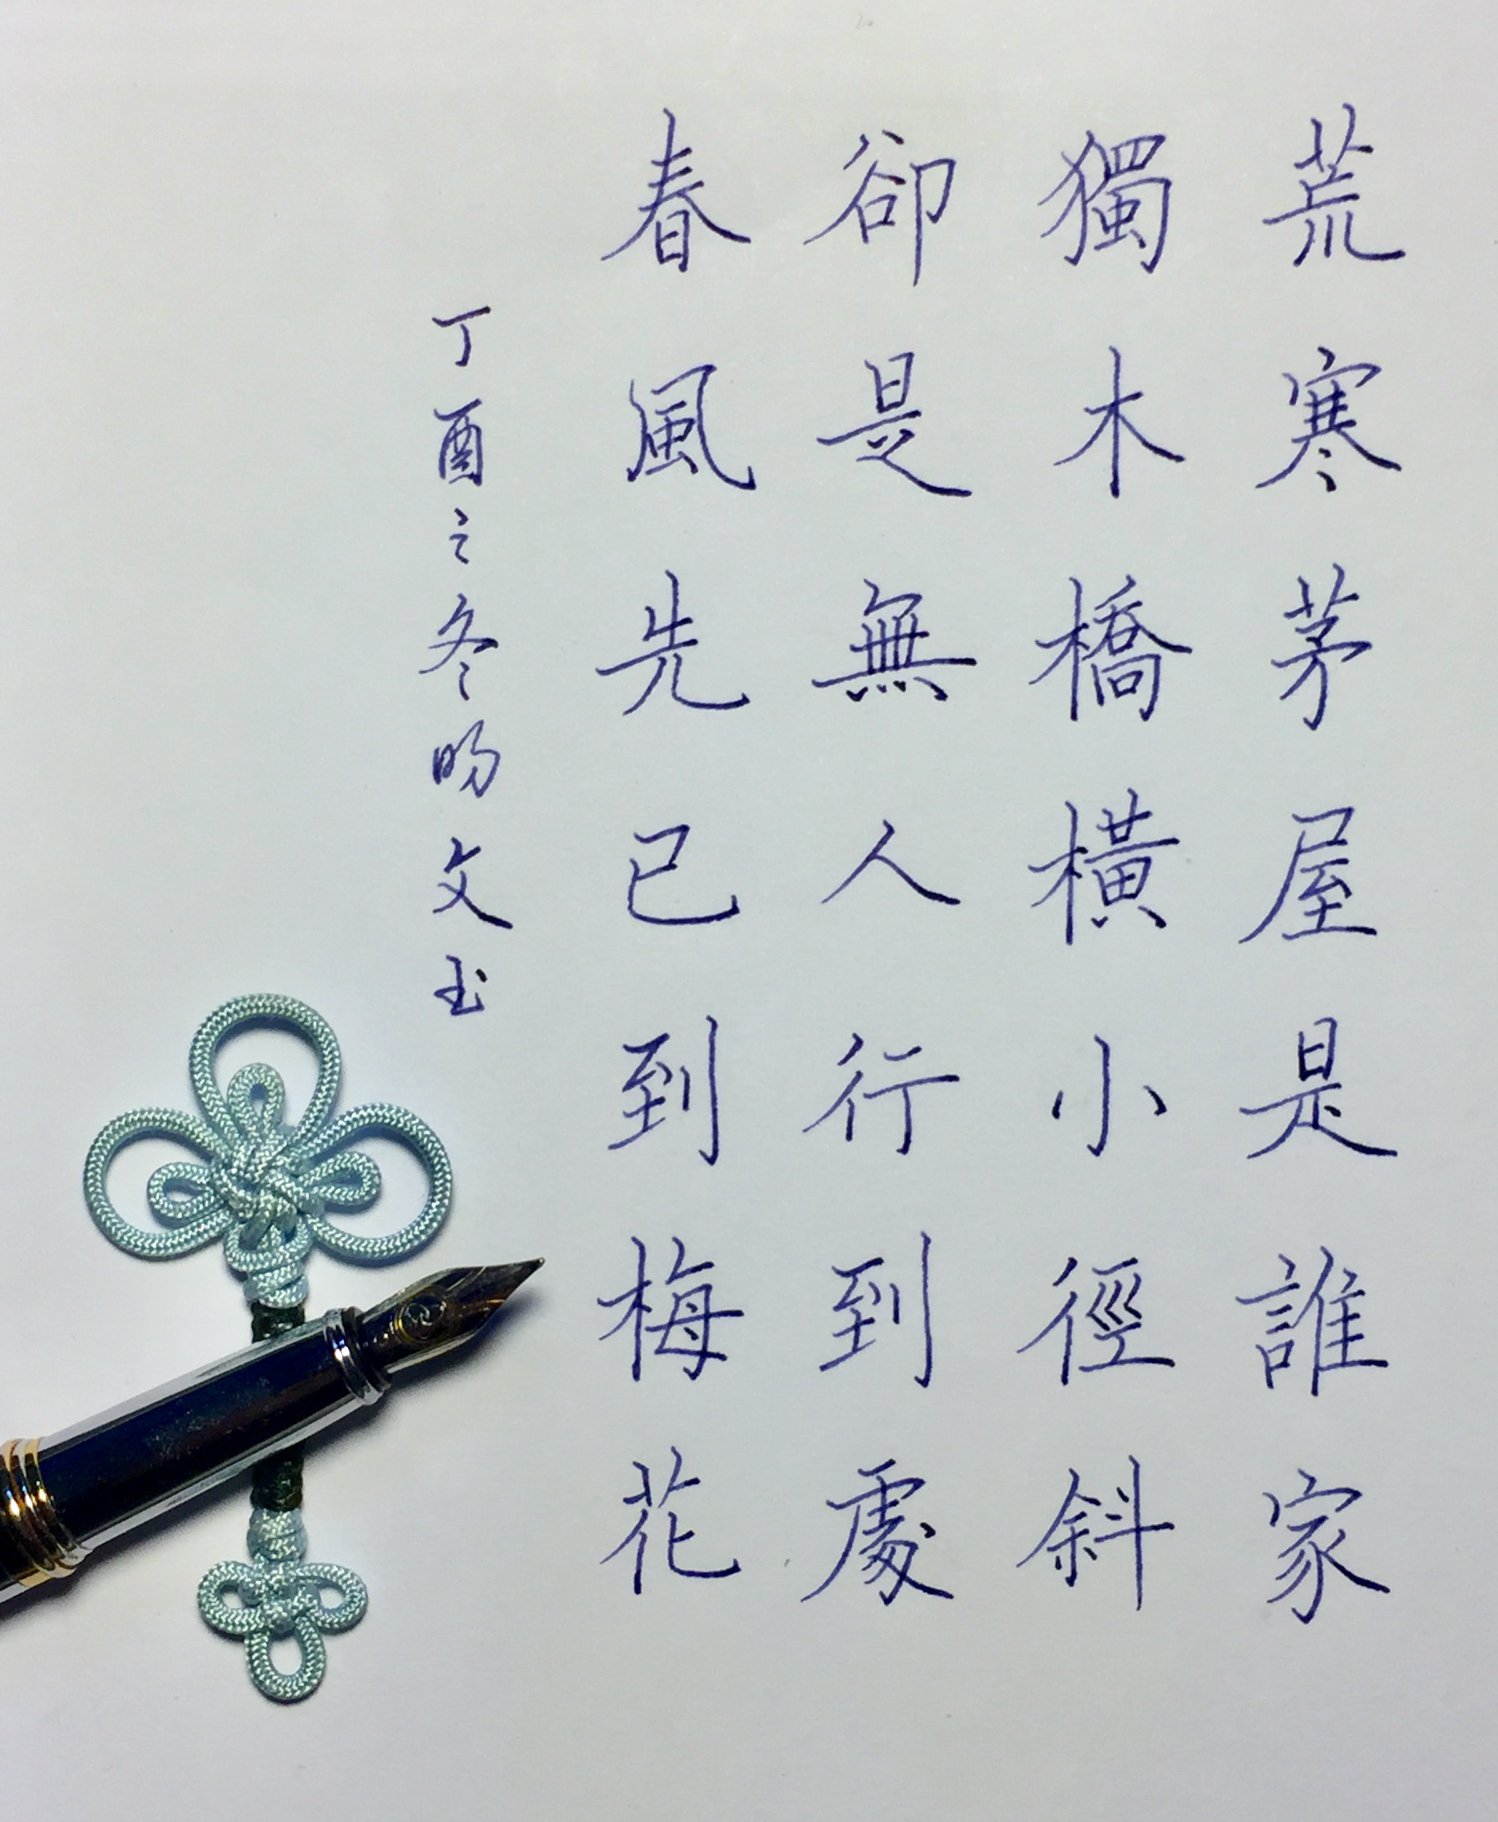 荒寒茅屋是誰家
獨木橋橫小徑斜
卻是無人行到處
春風先已到梅花
丁酉之冬昀文书